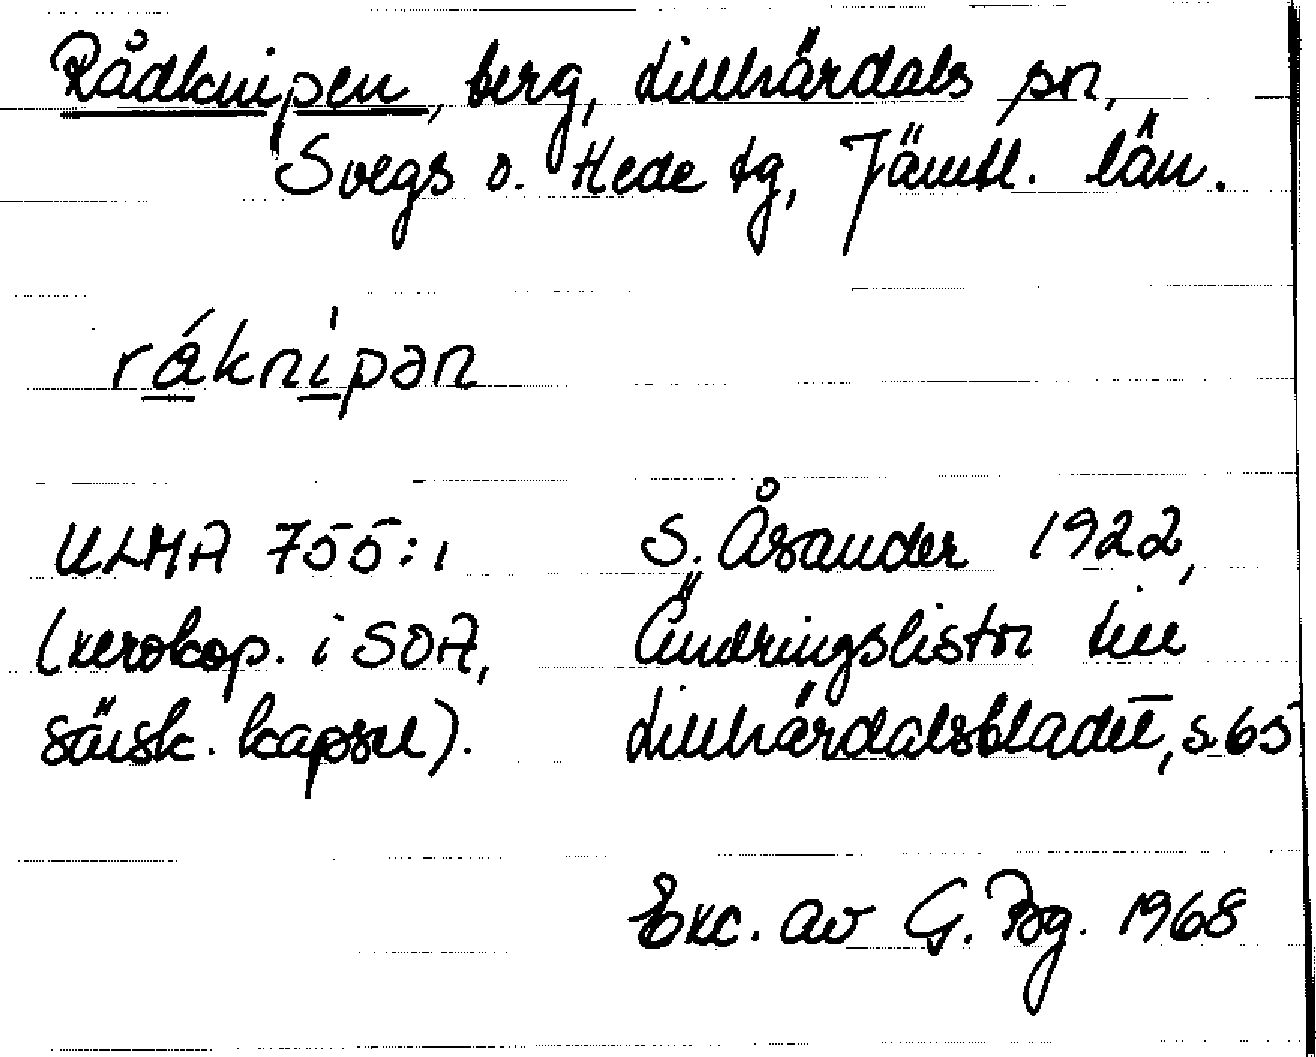 Rådknipen, berg, Lillhärdals sn,
Svegs o. Hede tg, Jämtl. län.
råknipən
ULMA 755:1
(xerokop. i SOA,
särsk. kapsel).
S. Åsander 1922,
Ändringslistor till
Lillhärdalsbladet, s. 65
Exc. av G. Bg. 1968